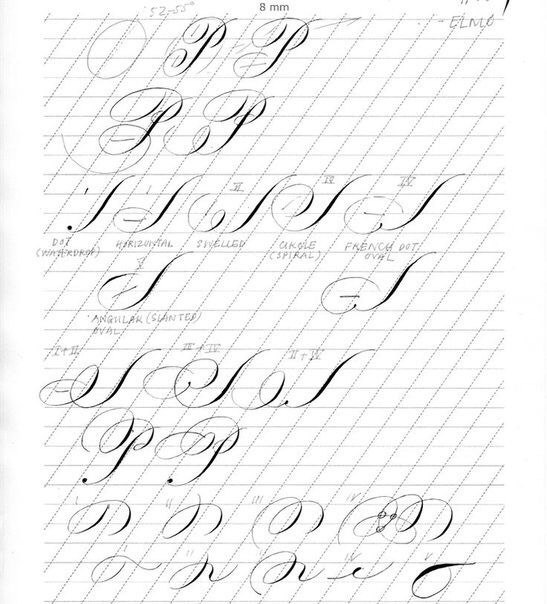 8 mm
52-55°
- ELMO
P P
P P
DOT HORIZONTAL SWELLED CIRCLE FRENCH DOT
(WATERDROP) (SPIRAL) OVAL
V
ANGULAR (SLANTED)
OVAL
I+II III+IV II+IV
P P
i ii iii iv
ii iv v